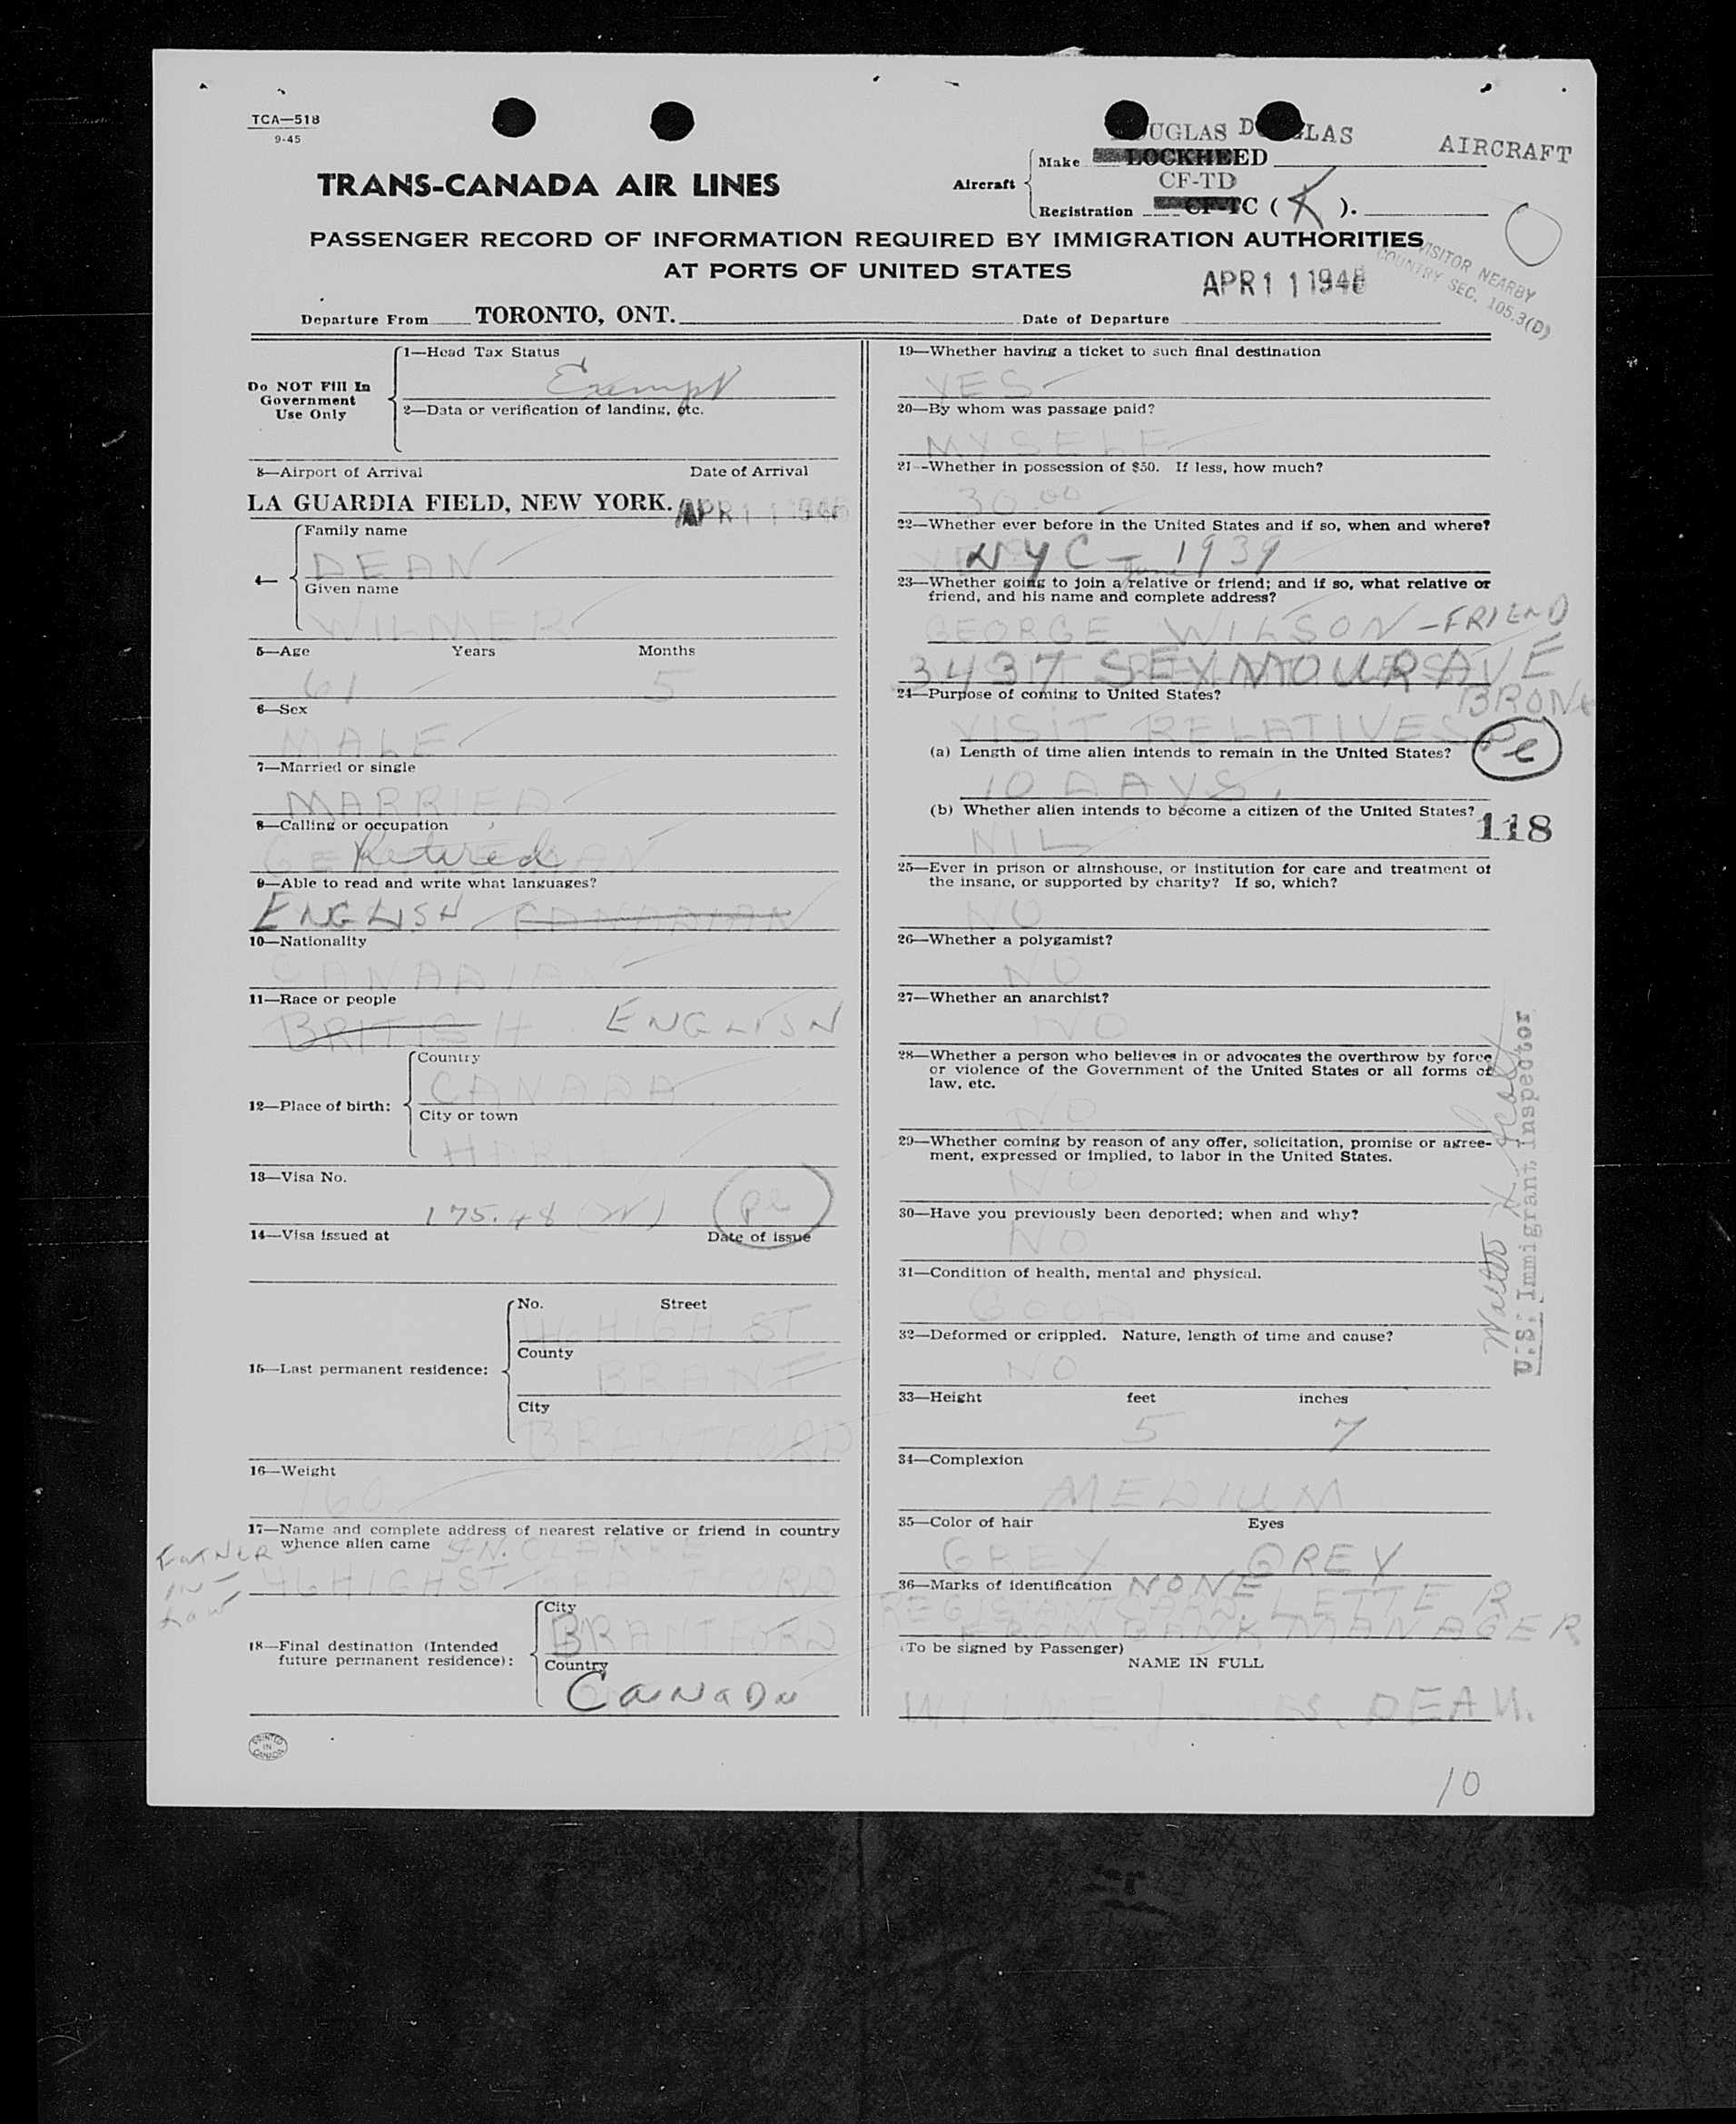 TCA—518
9-45
DOUGLAS DOUGLAS AIRCRAFT
Make LOCKHEED
TRANS-CANADA AIR LINES
Aircraft
CF-TD
Registration CF-TC ( K ).
PASSENGER RECORD OF INFORMATION REQUIRED BY IMMIGRATION AUTHORITIES
AT PORTS OF UNITED STATES
VISITOR NEARBY
COUNTRY SEC. 105.3(D)
APR 11 1946
Departure From TORONTO, ONT. Date of Departure
Do NOT Fill In
Government
Use Only
1—Head Tax Status
Exempt
2—Data or verification of landing, etc.
3—Airport of Arrival Date of Arrival
LA GUARDIA FIELD, NEW YORK. APR 11 1946
4—
Family name
DEAN
Given name
WILMER
5—Age Years Months
61 5
6—Sex
MALE
7—Married or single
MARRIED
8—Calling or occupation
Retired
9—Able to read and write what languages?
ENGLISH CANADIAN
10—Nationality
CANADIAN
11—Race or people
BRITISH ENGLISH
12—Place of birth:
Country
CANADA
City or town
13—Visa No.
175.48 (W)
14—Visa issued at Date of issue
15—Last permanent residence:
No. Street
46 HIGH ST
County
BRANT
City
BRANTFORD
16—Weight
160
17—Name and complete address of nearest relative or friend in country
whence alien came
FATHER
IN
LAW
46 HIGH ST BRANTFORD
18—Final destination (Intended
future permanent residence):
City
BRANTFORD
Country
CANADA
PRINTED
IN
CANADA
19—Whether having a ticket to such final destination
YES
20—By whom was passage paid?
MYSELF
21—Whether in possession of $50. If less, how much?
30.00
22—Whether ever before in the United States and if so, when and where?
NYC — June 1939
23—Whether going to join a relative or friend; and if so, what relative or
friend, and his name and complete address?
GEORGE WILSON — FRIEND
3437 SEYMOUR AVE
BRONX
24—Purpose of coming to United States?
VISIT RELATIVES
(a) Length of time alien intends to remain in the United States?
10 DAYS.
(b) Whether alien intends to become a citizen of the United States?
118
NIL
25—Ever in prison or almshouse, or institution for care and treatment of
the insane, or supported by charity? If so, which?
NO
26—Whether a polygamist?
NO
27—Whether an anarchist?
NO
28—Whether a person who believes in or advocates the overthrow by force
or violence of the Government of the United States or all forms of
law, etc.
NO
29—Whether coming by reason of any offer, solicitation, promise or agree-
ment, expressed or implied, to labor in the United States.
NO
30—Have you previously been deported; when and why?
NO
31—Condition of health, mental and physical.
GOOD
32—Deformed or crippled. Nature, length of time and cause?
NO
33—Height feet inches
5 7
34—Complexion
MEDIUM
35—Color of hair Eyes
GREY GREY
36—Marks of identification NONE
LETTER
FROM BANK MANAGER
(To be signed by Passenger)
NAME IN FULL
DEAN.
U.S. Immigrant Inspector
10